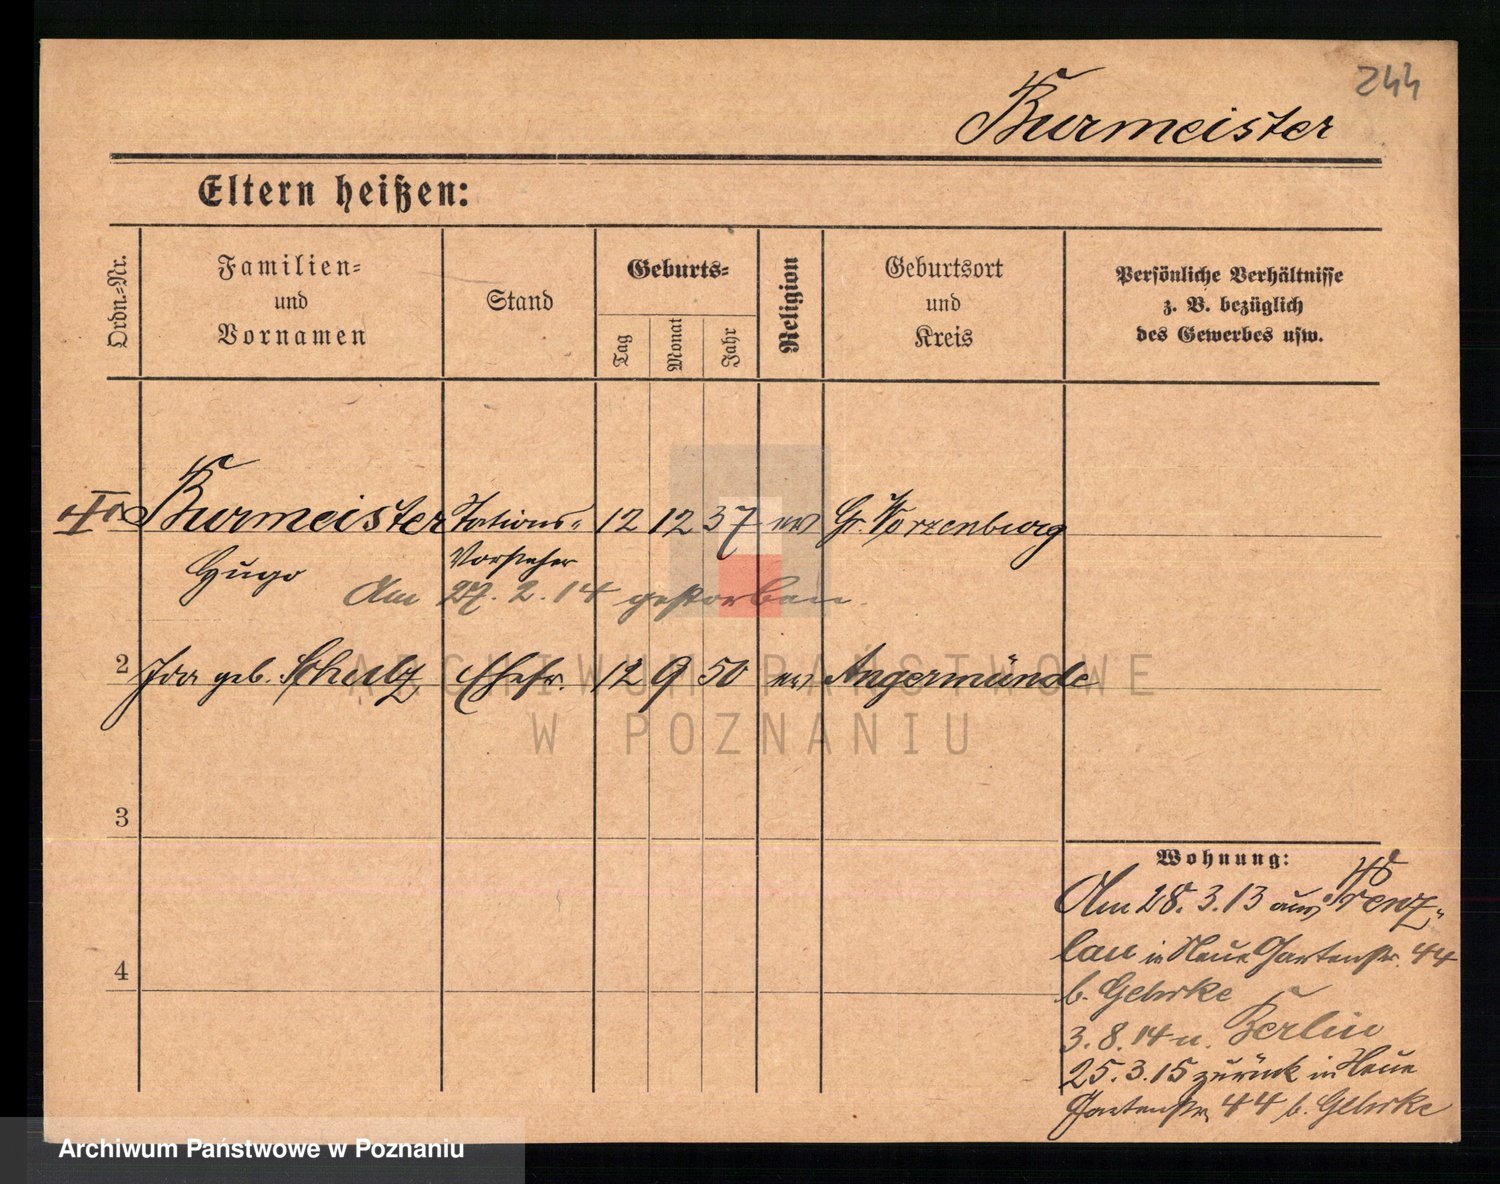 244
Burmeister
Eltern heißen:
Ordn.-Nr.
Familien-
und
Vornamen
Stand
Geburts-
Tag
Monat
Jahr
Religion
Geburtsort
und
Kreis
Persönliche Verhältnisse
z. B. bezüglich
des Gewerbes usw.
Burmeister Stations- 12 12 37 ev Gr. Worzenburg
Hugo Vorsteher
Am 27. 2. 14 gestorben.
2 Ida geb. Schulz Ehefr. 12 9 50 ev Angermünde
3
4
Wohnung:
Am 28. 3. 13 aus Prenz-
lau in Neue Gartenstr. 44
b. Gehrke
3. 8. 14 n. Berlin
25. 3. 15 zurück in Neue
Gartenstr. 44 b. Gehrke
ARCHIWUM PAŃSTWOWE
W POZNANIU
Archiwum Państwowe w Poznaniu